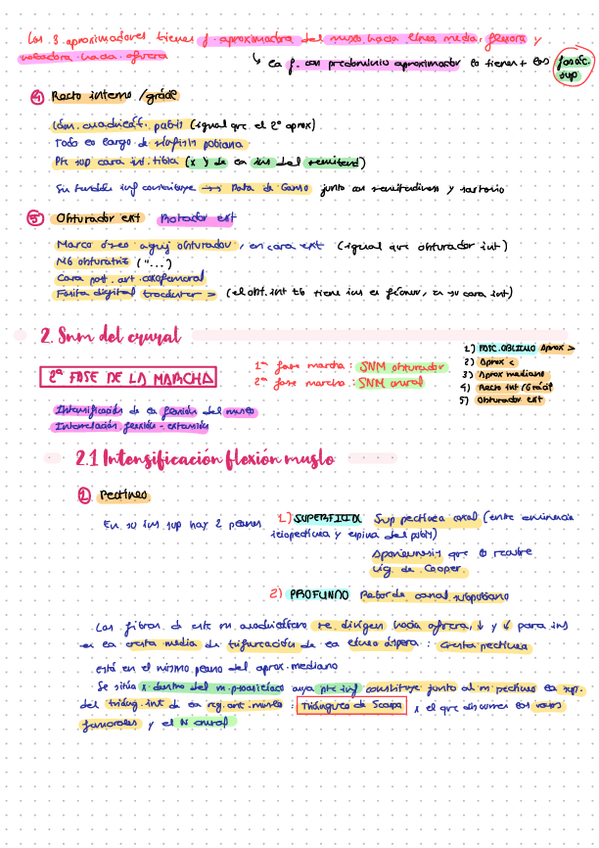 Los 3 aproximadores tienen f. aproximadora del muslo hacia línea media, flexora y
rotadora hacia afuera
↳ la f. con predominio aproximador lo tienen + los fascíc. sup
④ Recto interno / grácil
Lám. cuadrilát. pubis (igual que el 2º aprox)
Todo lo largo de sínfisis pubiana
Pte sup cara int. tibia (x ) de la ins del semitend)
Su tendón inf contribuye → Pata de Ganso junto con semitendinoso y sartorio
⑤ Obturador ext Rotador ext
Marco óseo aguj obturador, en cara ext (igual que obturador int)
Mb obturatriz ("...")
Cara post. art. coxofemoral
Fosita digital trocánter > (el obt. int tb tiene ins en fémur, en su cara int)
2. Snm del crural
2ª FASE DE LA MARCHA
1ª fase marcha: SNM obturador
2ª fase marcha: SNM crural
1) FASC. OBLICUO Aprox >
2) Aprox <
3) Aprox mediano
4) Recto int / Grácil
5) Obturador ext
Intensificación de la flexión del muslo
Interrelación flexión - extensión
2.1 Intensificación flexión muslo
① Pectíneo
En su ins sup hay 2 planos
1) SUPERFICIAL Sup pectínea coxal (entre eminencia
iliopectínea y espina del pubis)
Aponeurosis que lo recubre
Lig. de Cooper
2) PROFUNDO Reborde canal subpubiano
Las fibras de este m. cuadrilátero se dirigen hacia afuera, ↓ y ↓ para ins
en la cresta media de trifurcación de la línea áspera: Cresta pectínea
está en el mismo plano del aprox. mediano
Se sitúa x dentro del m. psoasilíaco cuya pte inf constituye junto al m. pectíneo la sup.
del triáng. int de la reg. ant. muslo: Triángulo de Scarpa x el que discurren los vasos
femorales y el N crural